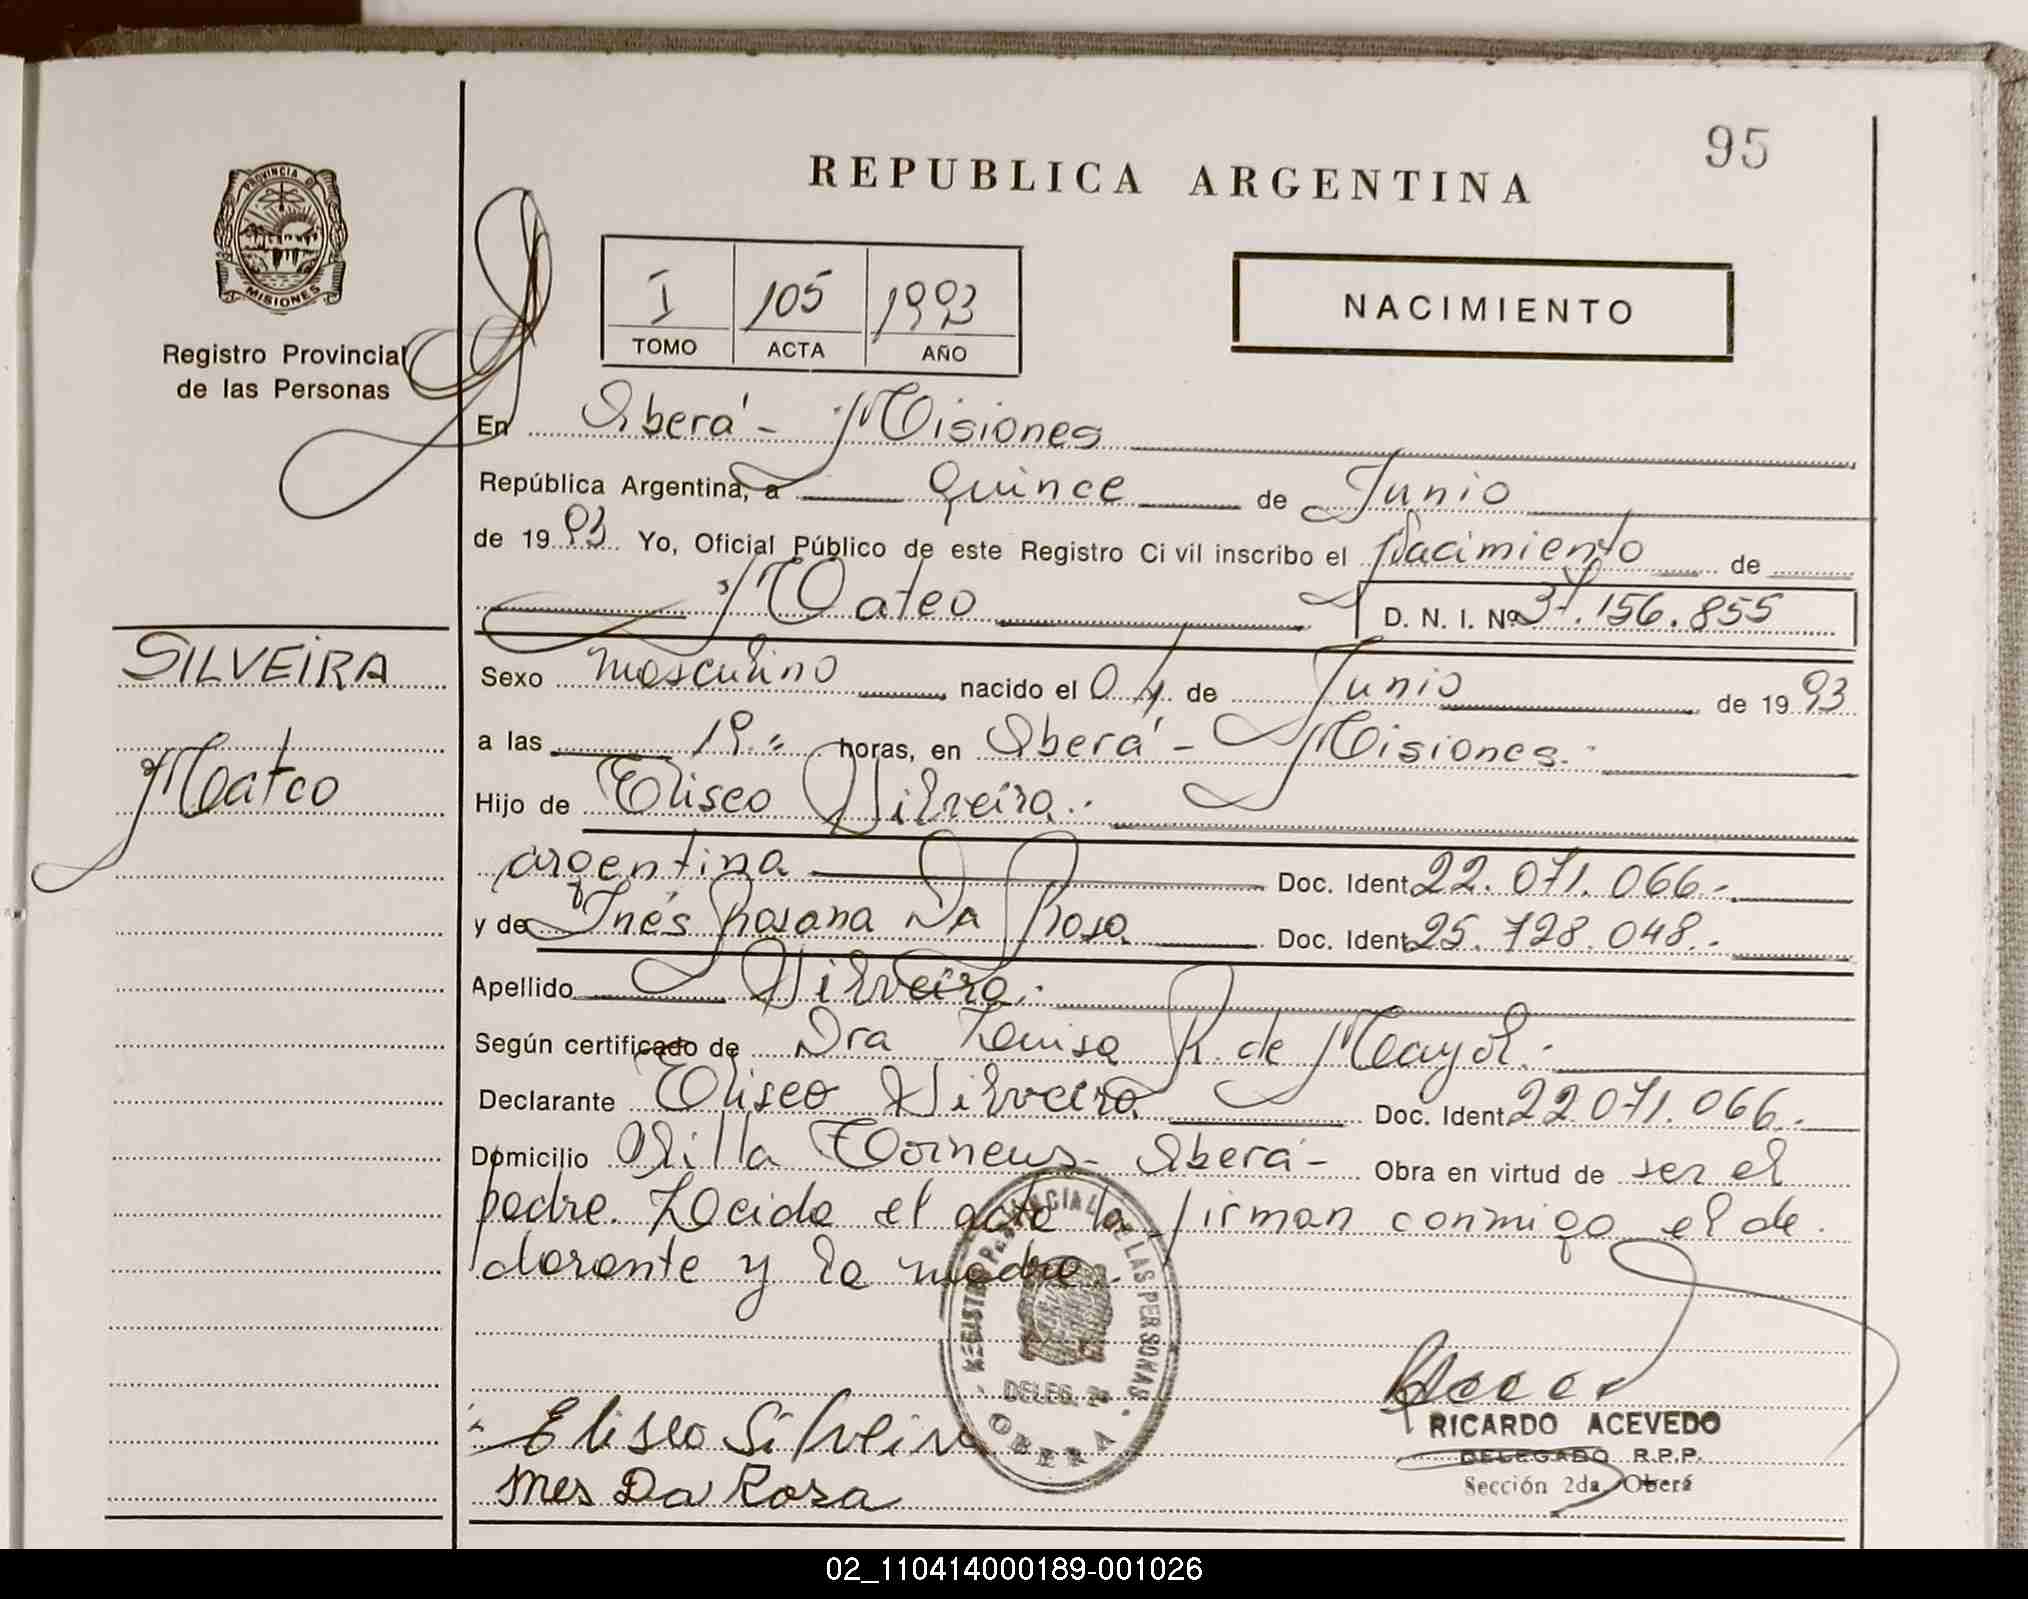 95
REPUBLICA ARGENTINA
PROVINCIA DE
MISIONES
Registro Provincial
de las Personas
I 105 1993
TOMO ACTA AÑO
NACIMIENTO
En Oberá - Misiones
República Argentina, a quince de Junio
de 1993 Yo, Oficial Público de este Registro Ci vil inscribo el Nacimiento de
Mateo D. N. I. Nº 37.156.855
SILVEIRA
Mateo
Sexo masculino nacido el 04 de Junio de 1993
a las 19.- horas, en Oberá - Misiones.-
Hijo de Eliseo Silveira.-
argentina Doc. Ident 22.071.066.-
y de Inés Rosana Da Rosa Doc. Ident 25.728.048.-
Apellido Silveira.-
Según certificado de Dra Luisa R. de Mayol.-
Declarante Eliseo Silveira Doc. Ident 22.071.066.-
Domicilio Villa Oberá - Obra en virtud de ser el
padre. Leida el acta la firman conmigo el de.
clarante y la madre.
REGISTRO PROVINCIAL DE LAS PERSONAS
DELEG. 2ª
OBERA
Eliseo Silveira
Ines Da Rosa
RICARDO ACEVEDO
DELEGADO R.P.P.
Sección 2da. Oberá
02_110414000189-001026